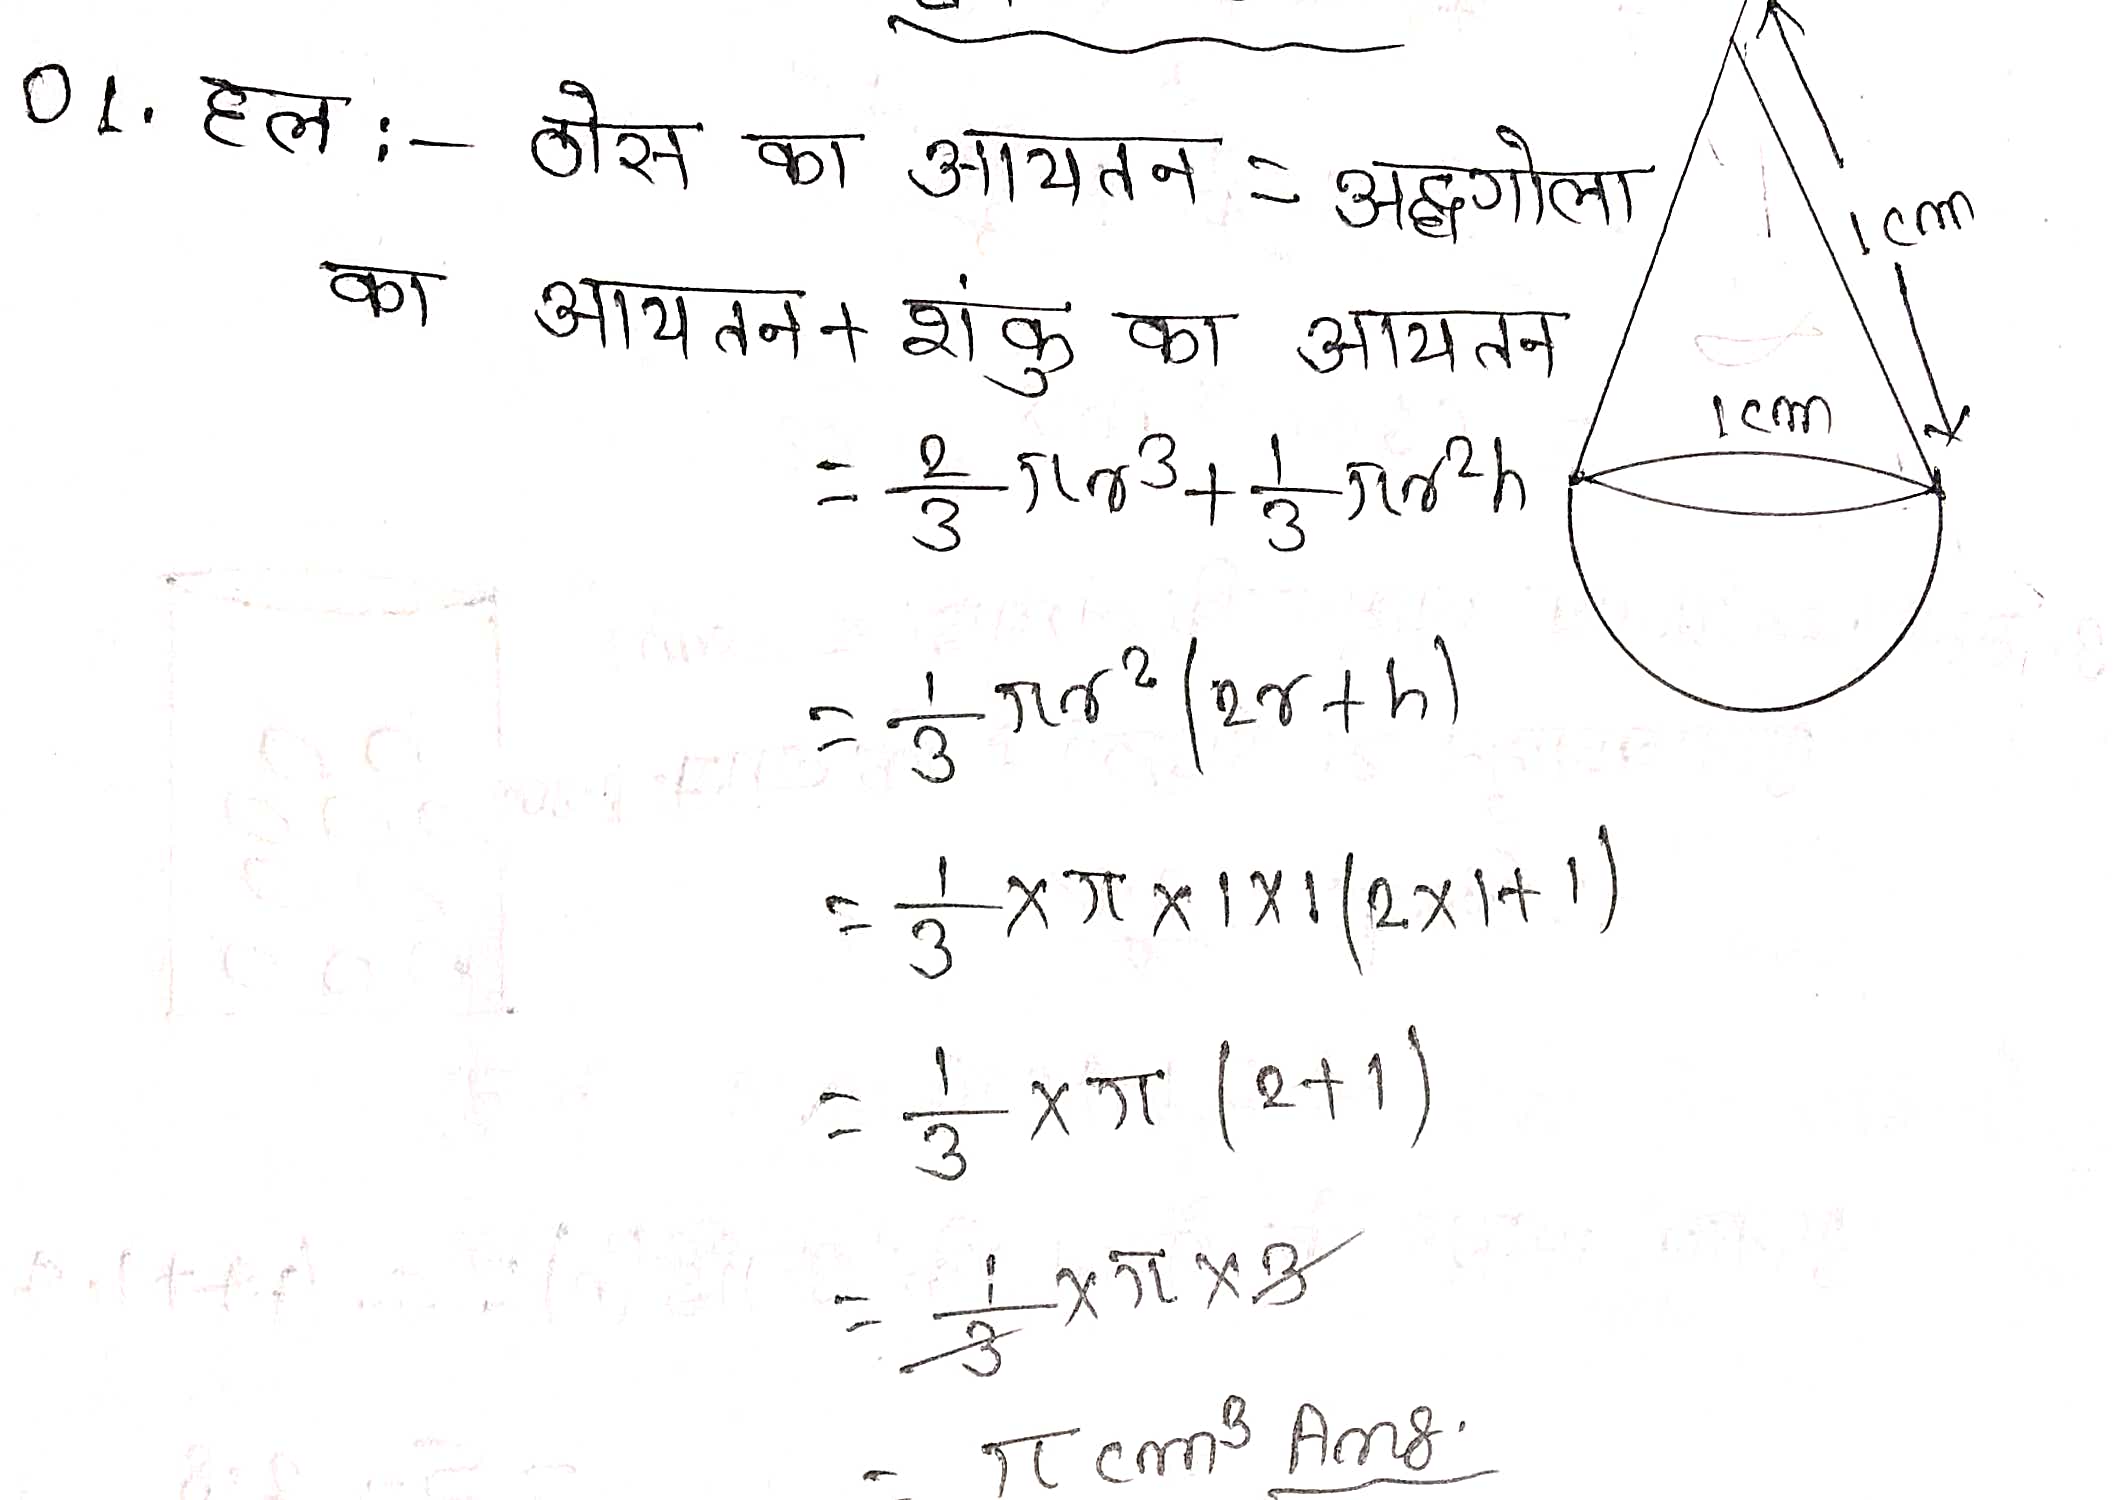 01. हल :- ठोस का आयतन = अर्द्धगोला
का आयतन + शंकु का आयतन
1cm
1cm
= 2/3 πr³ + 1/3 πr²h
= 1/3 πr² (2r + h)
= 1/3 × π × 1 × 1 (2 × 1 + 1)
= 1/3 × π (2 + 1)
= 1/3 × π × 3
= π cm³ Ans.